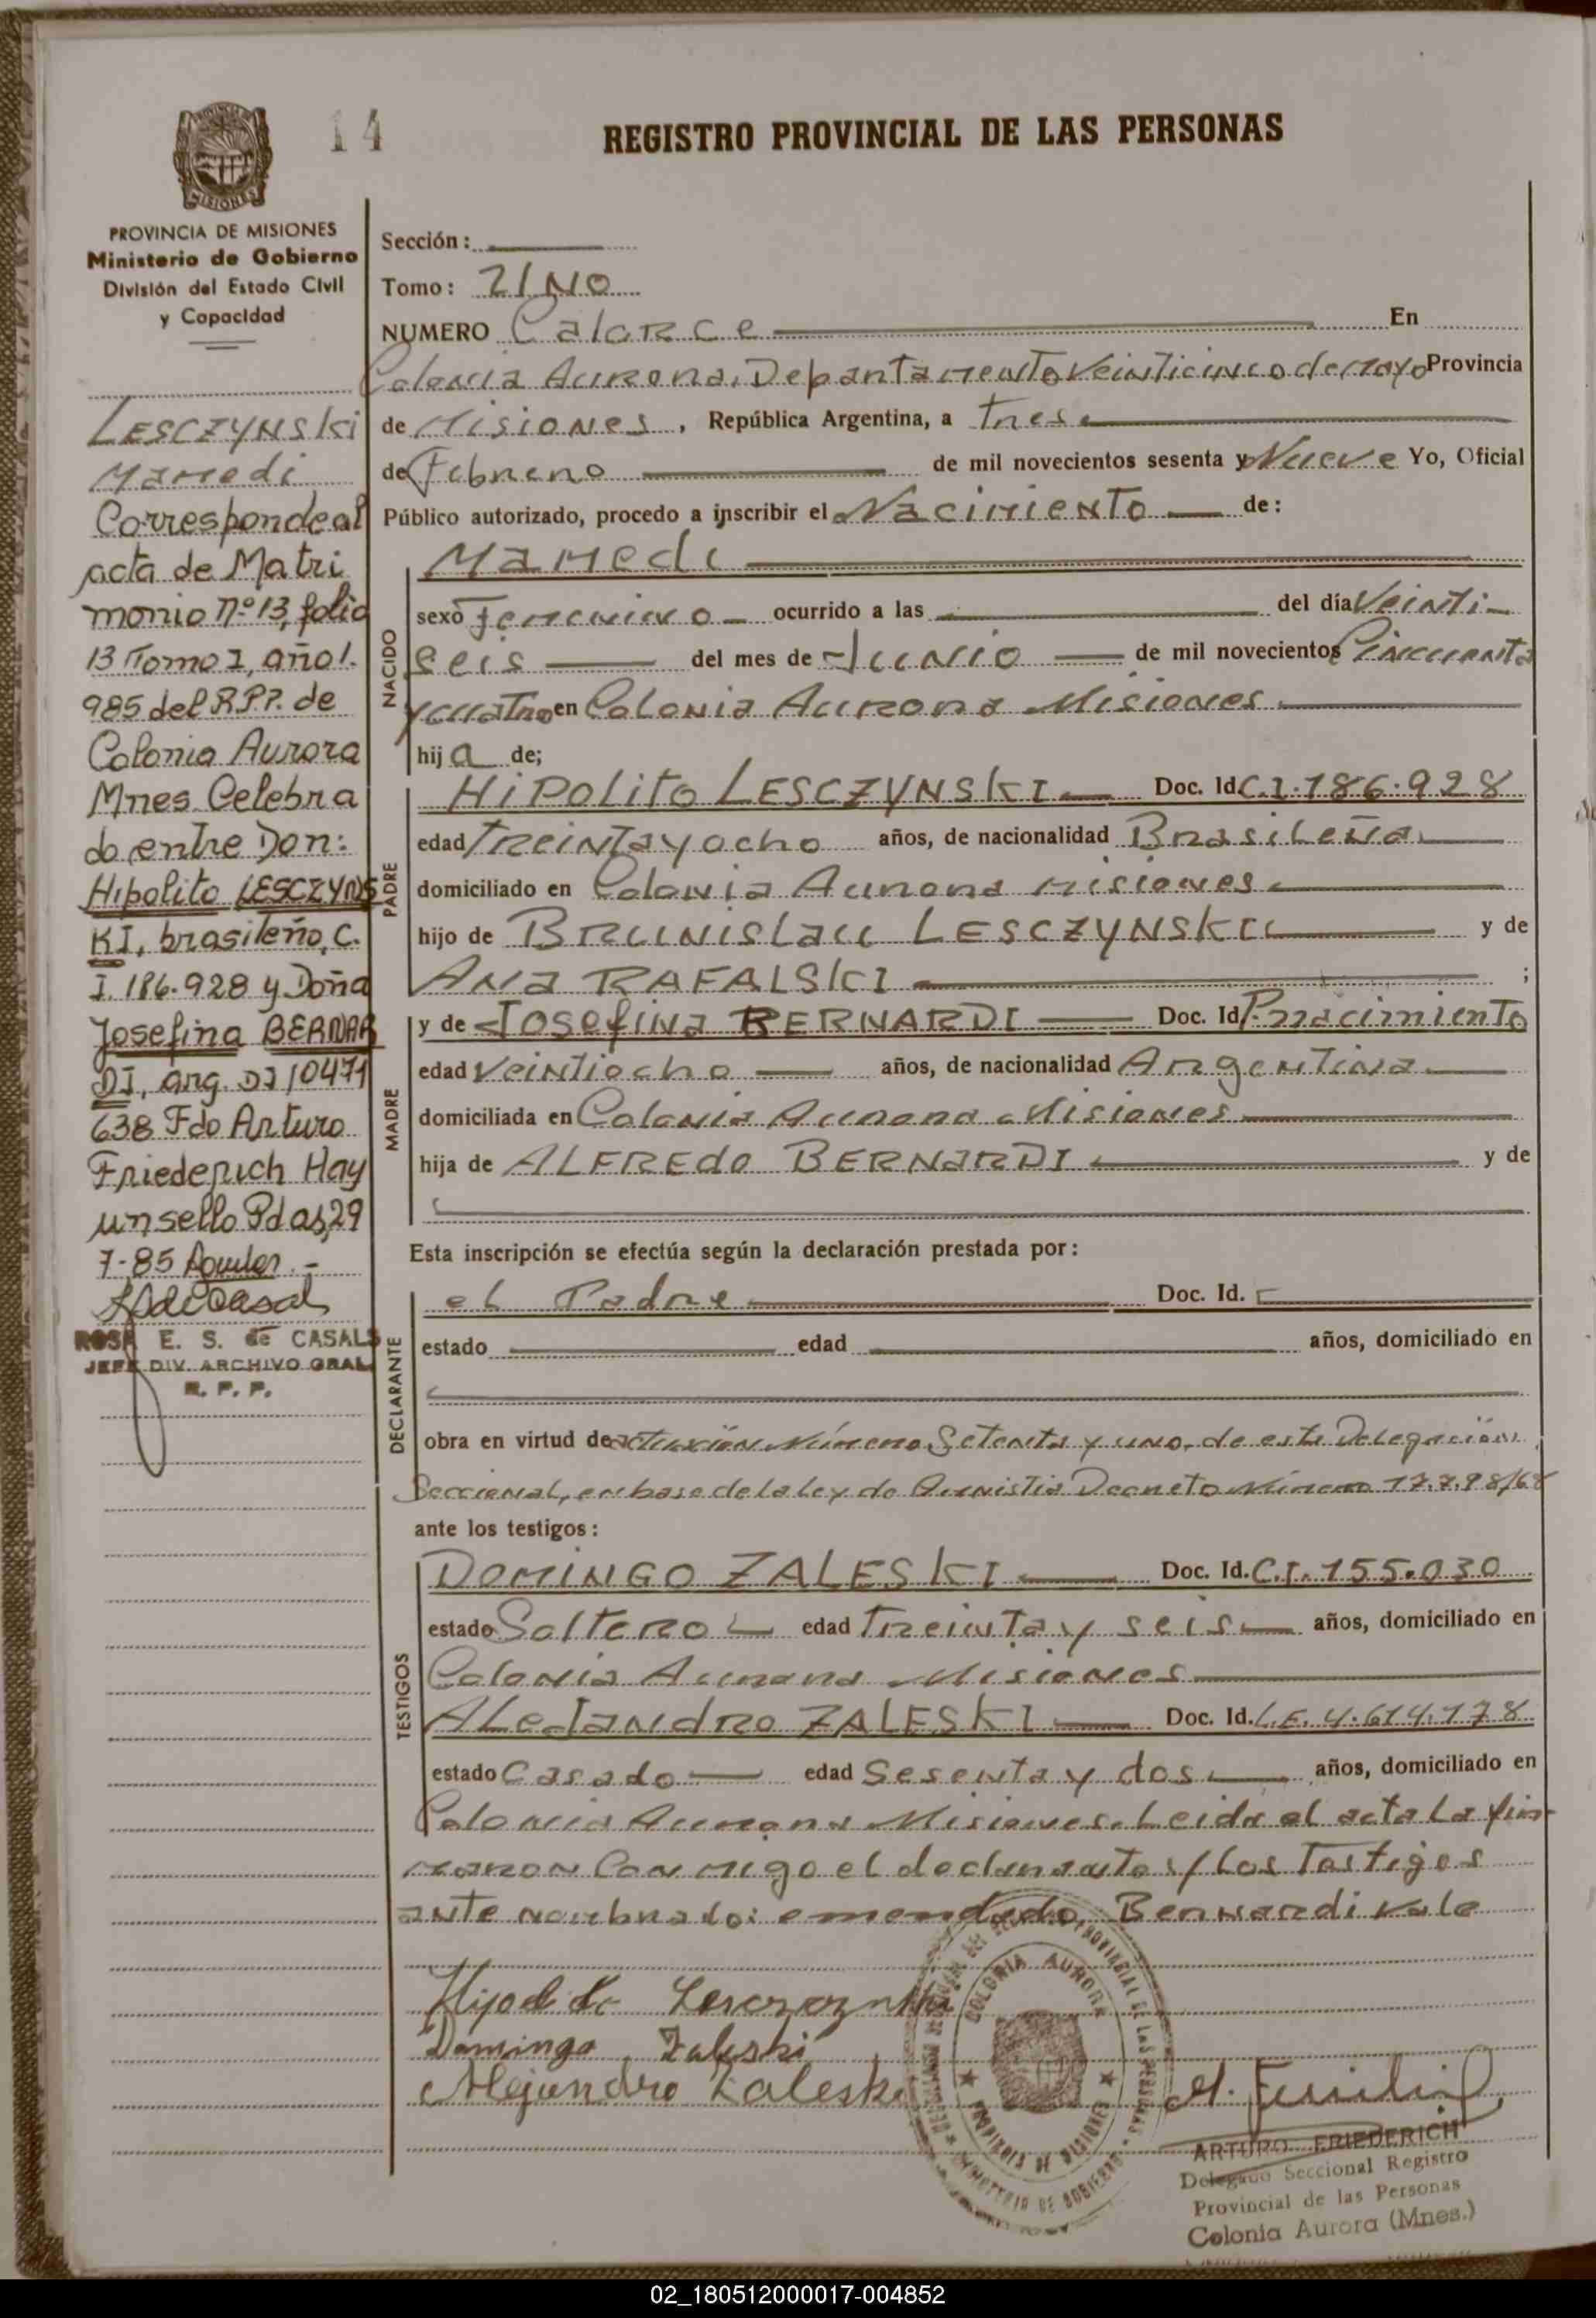 14
REGISTRO PROVINCIAL DE LAS PERSONAS
MISIONES
PROVINCIA DE MISIONES
Ministerio de Gobierno
División del Estado Civil
y Capacidad
LESCZYNSKI
Mamedi
Corresponde al
acta de Matri
monio nº 13, folio
13 Tomo I, año 1.
985 del R.P.P. de
Colonia Aurora
Mnes. Celebra
do entre Don:
Hipolito LESCZYNS
KI, brasileño, C.
I. 186.928 y Doña
Josefina BERNAR
DI, arg. DI 10471
638 Fdo Arturo
Friederich Hay
un sello Pdas, 29
7-85
ROSA E. S. de CASALS
JEFE DIV. ARCHIVO GRAL
R. P. P.
Sección:
Tomo: 2/NO
NUMERO Catorce En
Colonia Aurora, Departamento Veinticinco de Mayo Provincia
de Misiones, República Argentina, a tres
de Febrero de mil novecientos sesenta y Nueve Yo, Oficial
Público autorizado, procedo a inscribir el Nacimiento de:
NACIDO
Mamedi
sexo Femenino ocurrido a las del día Veinti-
seis del mes de Junio de mil novecientos Cincuenta
y cuatro en Colonia Aurora Misiones
hija de;
PADRE
HiPolito LESCZYNSKI Doc. Id C.I. 186.928
edad treinta y ocho años, de nacionalidad Brasileña
domiciliado en Colonia Aurora Misiones
hijo de BRUNislau LESCZYNSKI y de
Ana RAFALSKI ;
MADRE
y de Josefina BERNARDI Doc. Id P. nacimiento
edad Veintiocho años, de nacionalidad Argentina
domiciliada en Colonia Aurora Misiones
hija de ALFREdo BERNARDI y de
Esta inscripción se efectúa según la declaración prestada por:
DECLARANTE
el Padre Doc. Id.
estado edad años, domiciliado en
obra en virtud de actuación Número Setenta y uno, de esta Delegación
Seccional, en base de la ley de Amnistia Decreto Número 17.798/68
ante los testigos:
TESTIGOS
DOMINGO ZALESKI Doc. Id. C.I. 155.030
estado Soltero edad treinta y seis años, domiciliado en
Colonia Aurora Misiones
ALeJandro ZALESKI Doc. Id. L.E. 4.614.178
estado Casado edad Sesenta y dos años, domiciliado en
Colonia Aurora Misiones. Leida el acta la fir-
maron Con migo el declarante y los Testigos
ante nombrado: emendado, Bernardi vale
Domingo Zaleski
Alejandro Zaleski
COLONIA AURORA
PROVINCIA DE MISIONES
MINISTERIO DE GOBIERNO
ARTURO FRIEDERICH
Delegado Seccional Registro
Provincial de las Personas
Colonia Aurora (Mnes.)
02_180512000017-004852